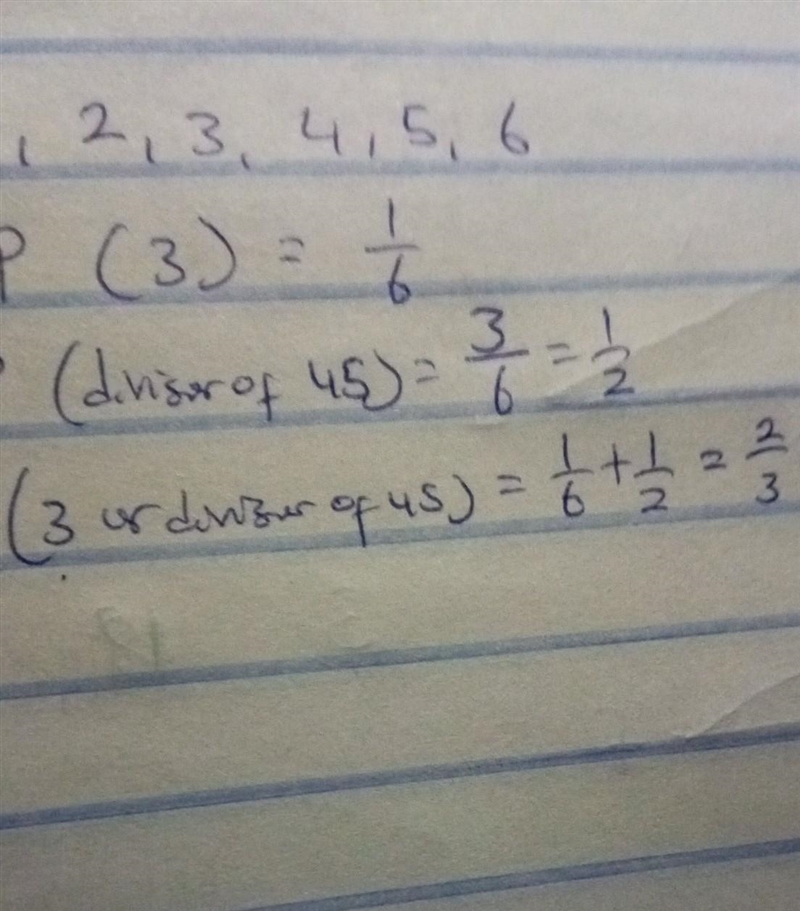 , 2, 3, 4, 5, 6
P (3) = 1/6
(divisor of 45) = 3/6 = 1/2
(3 or divisor of 45) = 1/6 + 1/2 = 2/3